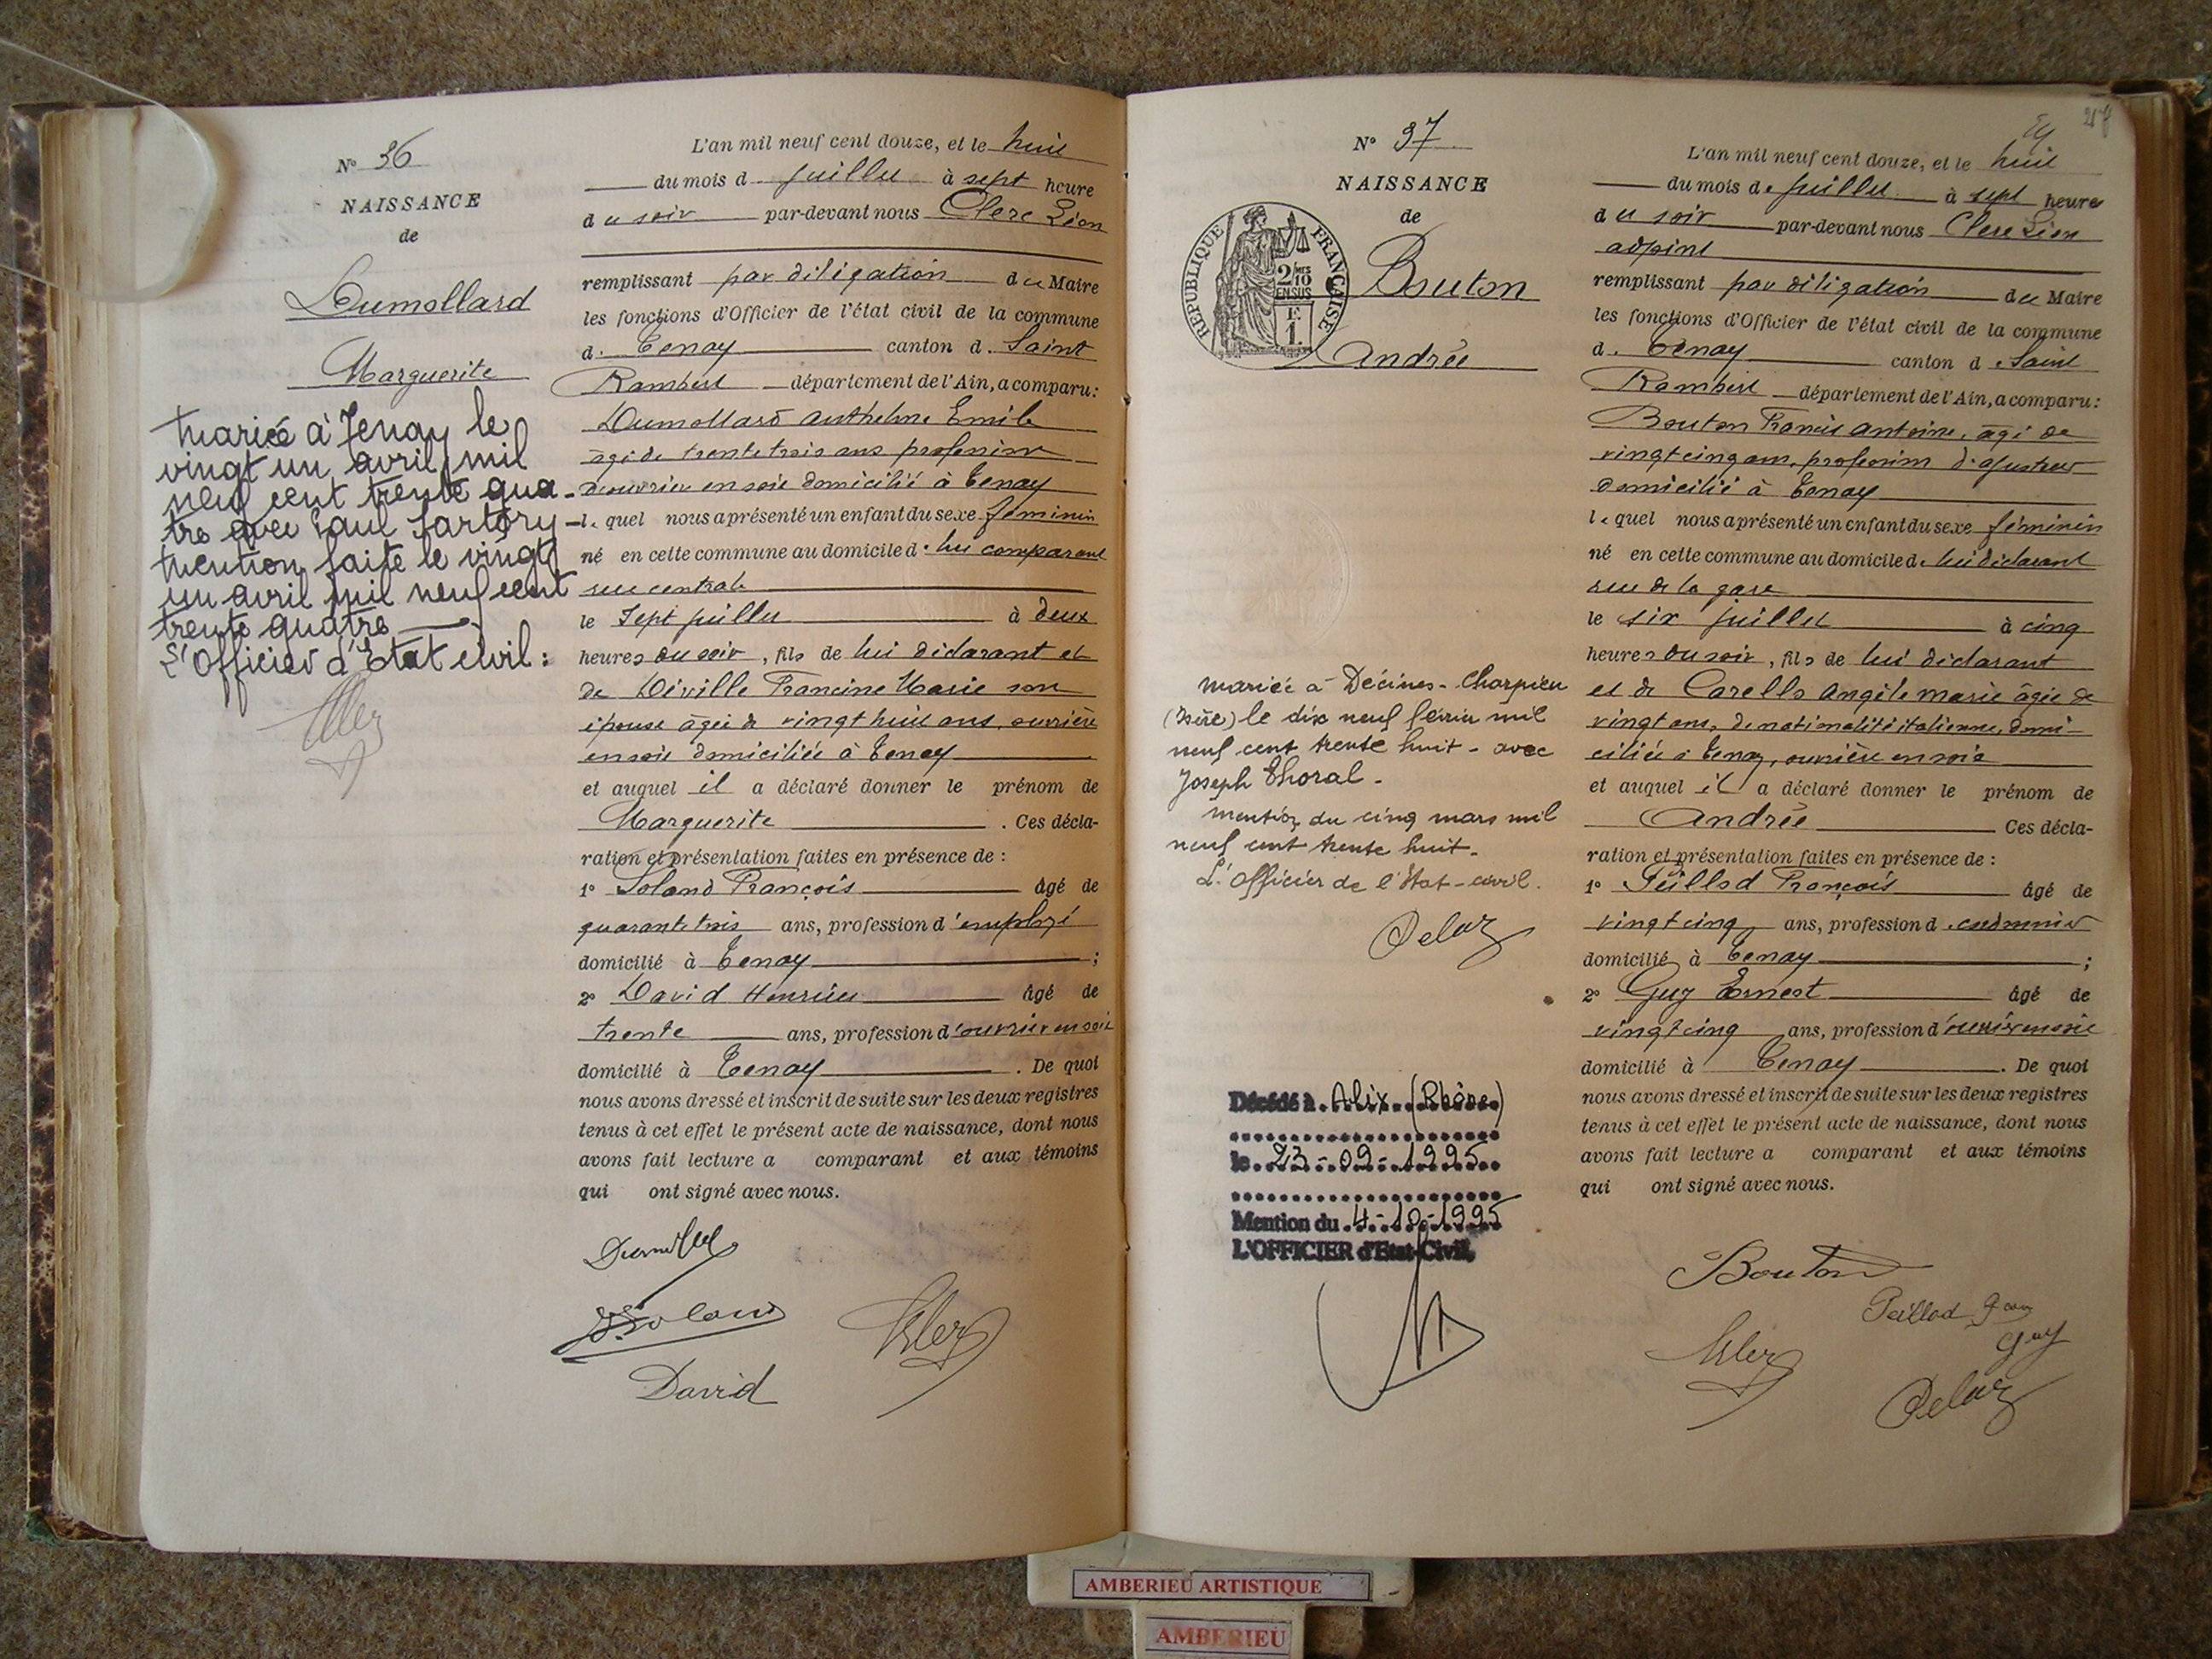 N° 36
NAISSANCE
de
Dumollard
Marguerite
Mariée à Tenay le
vingt un avril mil
neuf cent trente qua-
tre avec Paul Sartory
Mention faite le vingt
un avril mil neuf cent
trente quatre
L'Officier d'Etat civil :
L'an mil neuf cent douze, et le huit
du mois d. juillet à sept heure
du soir par-devant nous Clerc Léon
remplissant par déligation du Maire
les fonctions d'Officier de l'état civil de la commune
d. Tenay canton d. Saint
Rambert département de l'Ain, a comparu :
Dumollard Anthelme Emile
âgé de trente trois ans profession
d'ouvrier en soie domicilié à Tenay
lequel nous a présenté un enfant du sexe féminin
né en cette commune au domicile de lui comparant
rue centrale
le Sept juillet à deux
heures du soir, fils de lui déclarant et
de Diville Francine Marie son
épouse âgée de vingt huit ans, ouvrière
en soie domiciliée à Tenay
et auquel il a déclaré donner le prénom de
Marguerite. Ces décla-
ration et présentation faites en présence de :
1° Soland François âgé de
quarante trois ans, profession d'employé
domicilié à Tenay ;
2° David Henri âgé de
trente ans, profession d'ouvrier en soie
domicilié à Tenay. De quoi
nous avons dressé et inscrit de suite sur les deux registres
tenus à cet effet le présent acte de naissance, dont nous
avons fait lecture a comparant et aux témoins
qui ont signé avec nous.
Soland
David
N° 37
NAISSANCE
de
RÉPUBLIQUE FRANÇAISE
2/10
EN SUS
F.
1.
Bouton
Andrée
mariée à Décines-Charpieu
(Isère) le dix neuf février mil
neuf cent trente huit - avec
Joseph Thoral -
mention du cinq mars mil
neuf cent trente huit -
L'officier de l'Etat-civil.
Delaz
Décédé à Alix (Rhône)
le 23-09-1995
Mention du 4-10-1995
L'OFFICIER d'Etat-Civil,
L'an mil neuf cent douze, et le huit
du mois de juillet à sept heures
du soir par-devant nous Clerc Léon
adjoint
remplissant par déligation du Maire
les fonctions d'Officier de l'état civil de la commune
d. Tenay canton de Saint
Rambert département de l'Ain, a comparu :
Bouton Francis Antoine, âgé de
vingt cinq ans, profession d'ajusteur
domicilié à Tenay
lequel nous a présenté un enfant du sexe féminin
né en cette commune au domicile de lui déclarant
rue de la gare
le six juillet à cinq
heures du soir, fils de lui déclarant
et de Carello Angèle Marie âgée de
vingt ans, de nationalité italienne, domi-
ciliée à Tenay, ouvrière en soie
et auquel il a déclaré donner le prénom de
Andrée Ces décla-
ration et présentation faites en présence de :
1° Peillod François âgé de
vingt cinq ans, profession de cordonnier
domicilié à Tenay ;
2° Guy Ernest âgé de
vingt cinq ans, profession d'ouvrier en soie
domicilié à Tenay. De quoi
nous avons dressé et inscrit de suite sur les deux registres
tenus à cet effet le présent acte de naissance, dont nous
avons fait lecture a comparant et aux témoins
qui ont signé avec nous.
Bouton
Peillod
Guy
Delaz
AMBERIEU ARTISTIQUE
AMBERIEU